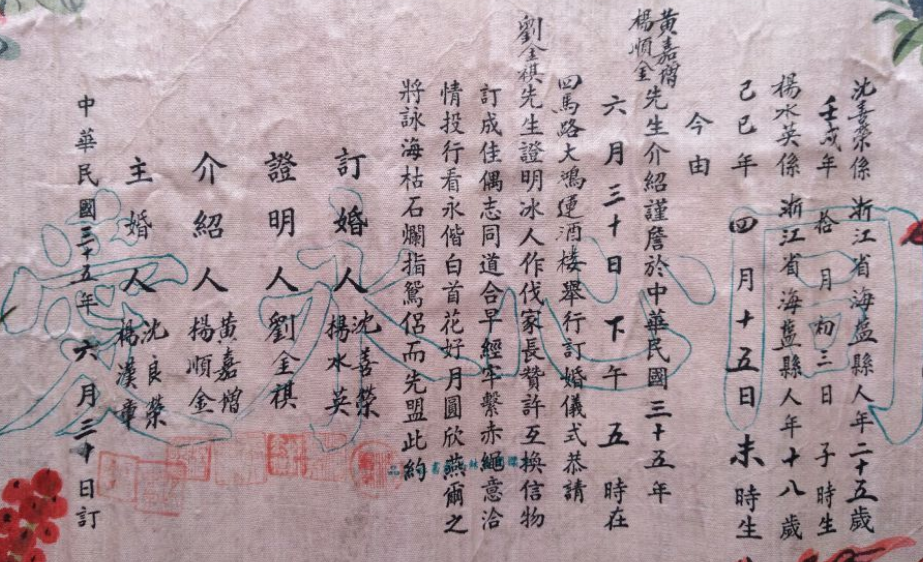 沈善榮係 浙江省海盬縣人年二十五歲
壬戌年 拾月初三日 子時生
楊水英係 浙江省海盬縣人年十八歲
己巳年 四月十五日 未時生
今由
黃嘉熷
楊順金先生介紹謹詹於中華民國三十五年
六月三十日下午五時在
四馬路大鴻運酒楼舉行訂婚儀式恭請
劉金祺先生證明冰人作伐家長贊許互換信物
訂成佳偶志同道合早經牢繫赤繩意洽
情投行看永偕白首花好月圓欣燕爾之
將詠海枯石爛指鴛侶而先盟此約
訂婚人 沈善榮
楊水英
證明人 劉金祺
介紹人 黃嘉熷
楊順金
主婚人 沈良榮
楊漢章
中華民國三十五年六月三十日訂
同心永愛